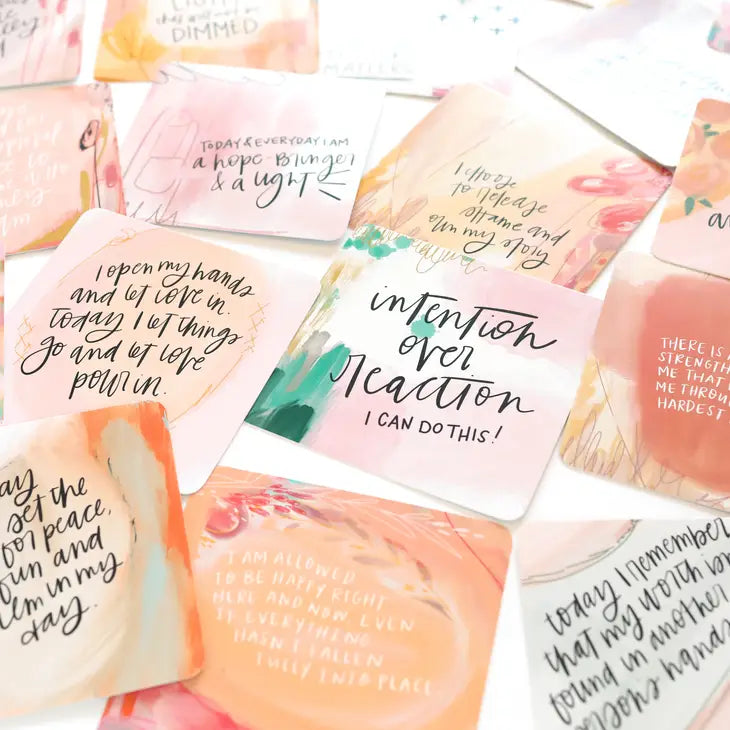 DIMMED
MATTERS
TODAY & EVERYDAY I AM
a hope-bringer
& a light
I choose
to release
shame and
own my story
I open my hands
and let love in.
today I let things
go and let love
pour in.
intention
over
reaction
I CAN DO THIS!
THERE IS
STRENGTH
ME THAT
ME THROU
HARDEST
ay
set the
for peace,
fun and
em in my
day.
I AM ALLOWED
TO BE HAPPY RIGHT
HERE AND NOW. EVEN
IF EVERYTHING
HASN'T FALLEN
FULLY INTO PLACE.
today I remember
that my worth isn
found in another
persons hands